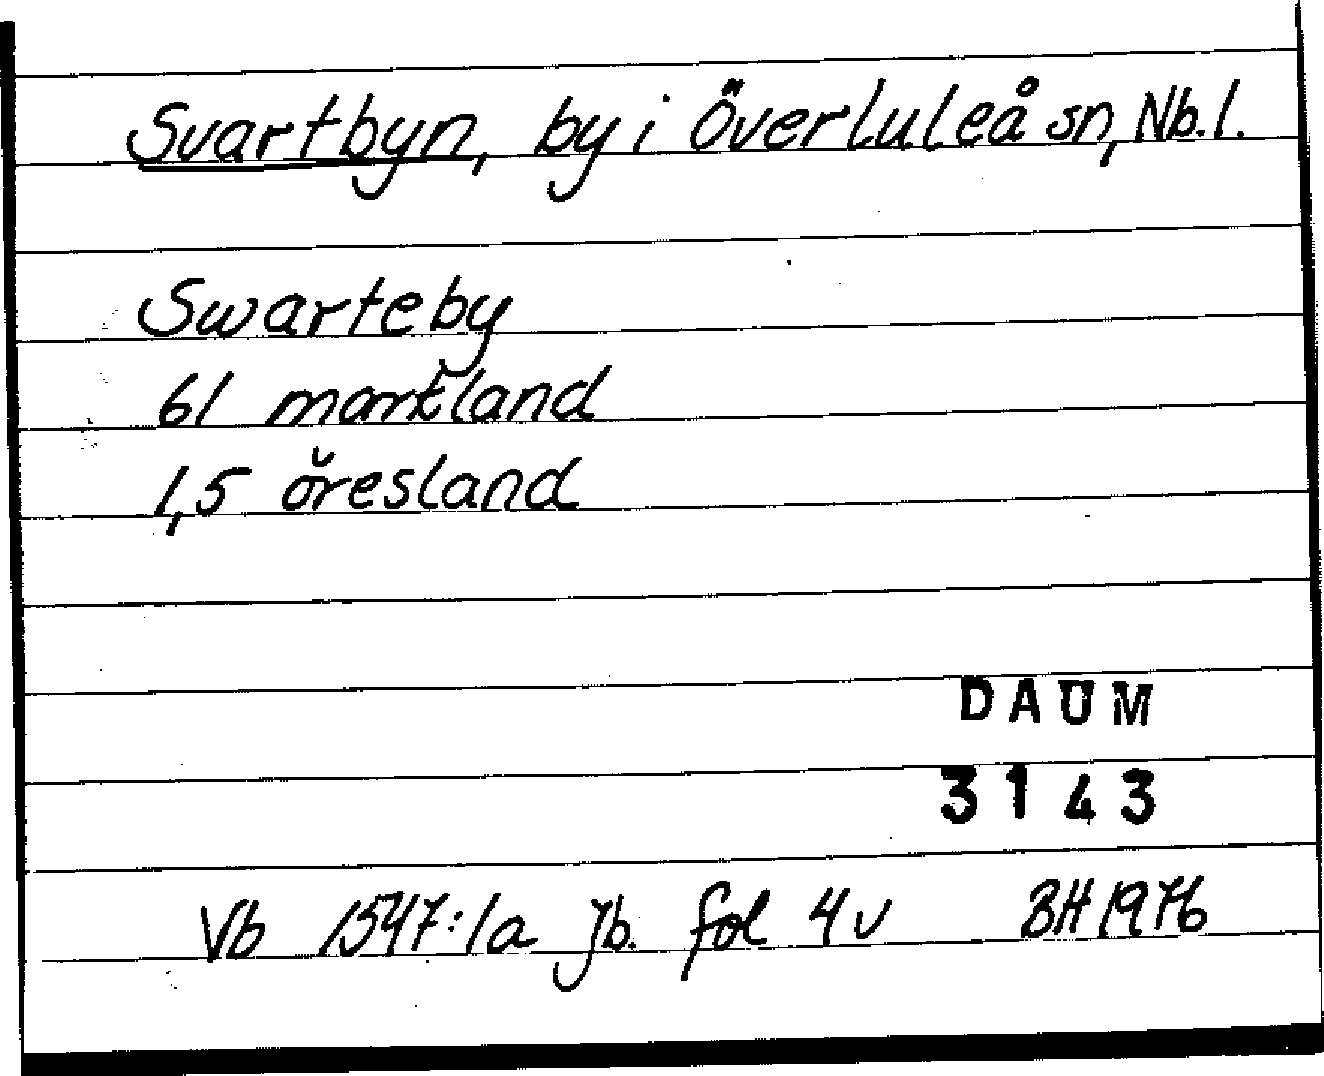 Svartbyn, by i Överluleå sn, Nb. l.
Swarteby
61 markland
1,5 öresland
DAUM
3143
Vb 1547:1a jb. fol 4 v BH 1976